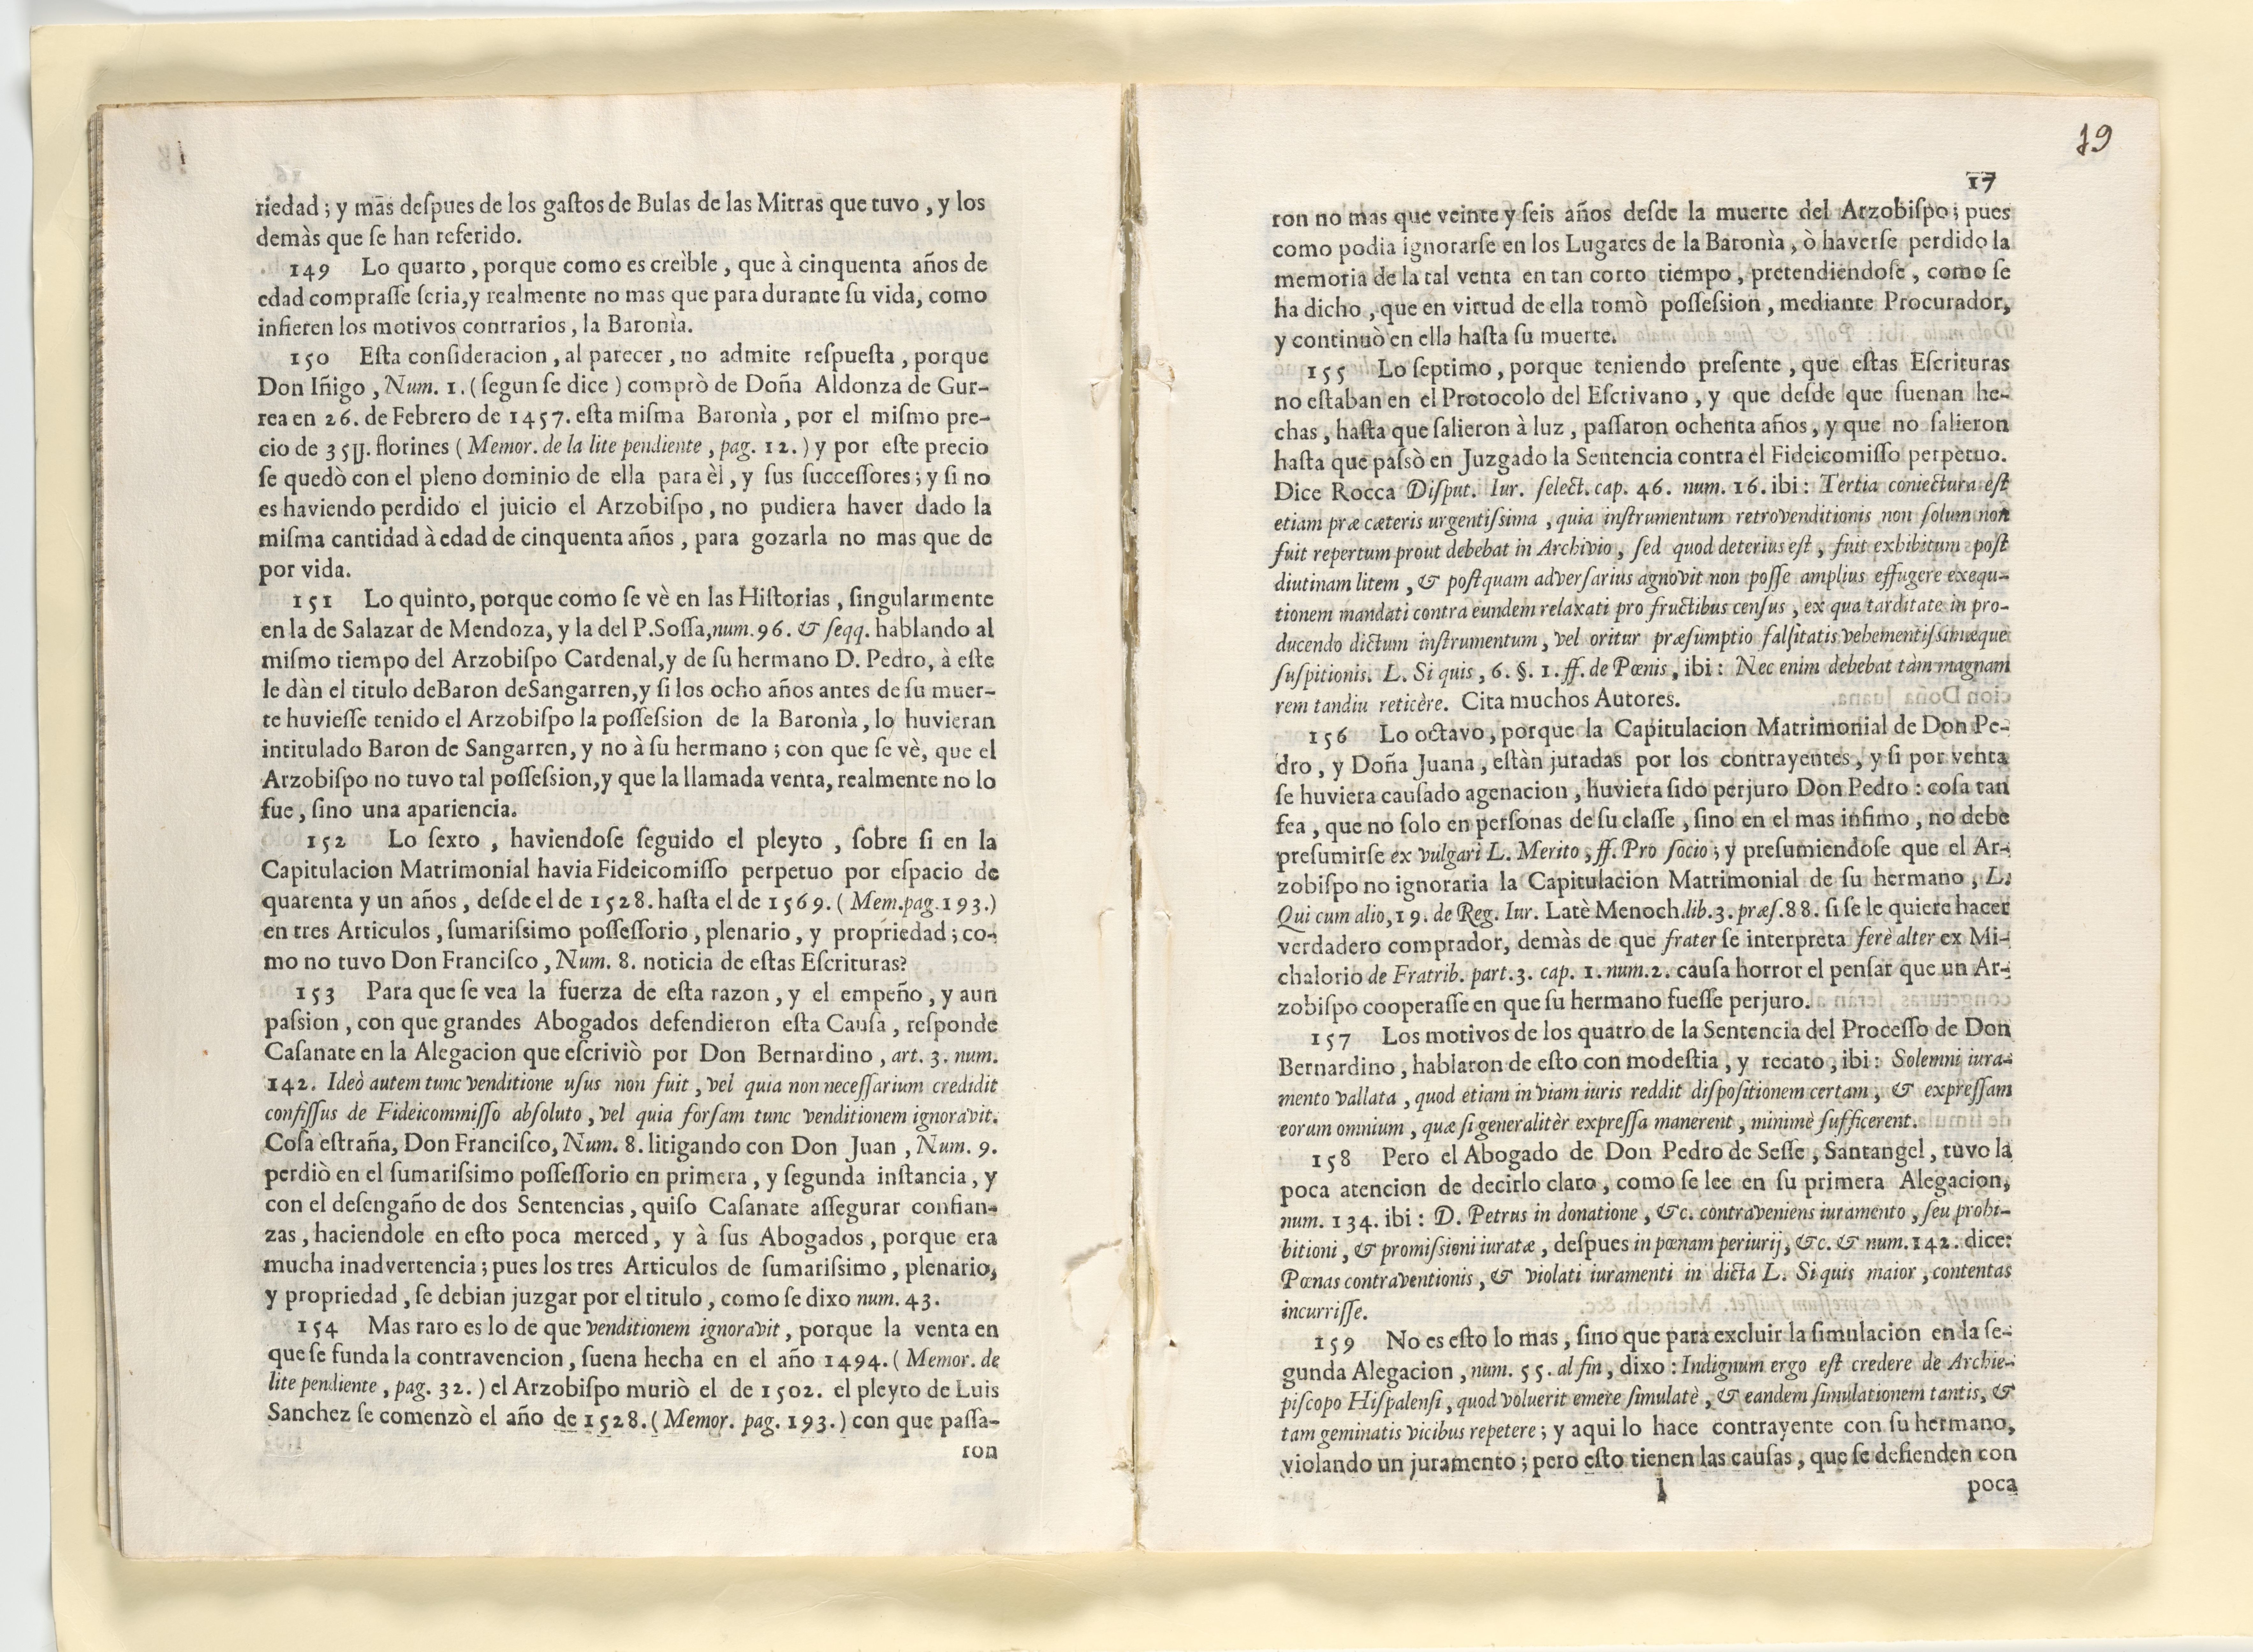 riedad; y mas deſpues de los gaſtos de Bulas de las Mitras que tuvo, y los
demàs que ſe han referido.
149 Lo quarto, porque como es creìble, que à cinquenta años de
edad compraſſe ſeria, y realmente no mas que para durante ſu vida, como
infieren los motivos contrarios, la Baronìa.
150 Eſta conſideracion, al parecer, no admite reſpueſta, porque
Don Iñigo, Num. 1. (ſegun ſe dice) comprò de Doña Aldonza de Gur-
rea en 26. de Febrero de 1457. eſta miſma Baronìa, por el miſmo pre-
cio de 35U. florines (Memor. de la lite pendiente, pag. 12.) y por eſte precio
ſe quedò con el pleno dominio de ella para èl, y ſus ſucceſſores; y ſi no
es haviendo perdido el juicio el Arzobiſpo, no pudiera haver dado la
miſma cantidad à edad de cinquenta años, para gozarla no mas que de
por vida.
151 Lo quinto, porque como ſe vè en las Hiſtorias, ſingularmente
en la de Salazar de Mendoza, y la del P. Soſſa, num. 96. & ſeqq. hablando al
miſmo tiempo del Arzobiſpo Cardenal, y de ſu hermano D. Pedro, à eſte
le dàn el titulo de Baron de Sangarren, y ſi los ocho años antes de ſu muer-
te huvieſſe tenido el Arzobiſpo la poſſeſsion de la Baronìa, lo huvieran
intitulado Baron de Sangarren, y no à ſu hermano; con que ſe vè, que el
Arzobiſpo no tuvo tal poſſeſsion, y que la llamada venta, realmente no lo
fue, ſino una apariencia.
152 Lo ſexto, haviendoſe ſeguido el pleyto, ſobre ſi en la
Capitulacion Matrimonial havia Fideicomiſſo perpetuo por eſpacio de
quarenta y un años, deſde el de 1528. haſta el de 1569. (Mem. pag. 193.)
en tres Articulos, ſumariſsimo poſſeſſorio, plenario, y propriedad; co-
mo no tuvo Don Franciſco, Num. 8. noticia de eſtas Eſcrituras?
153 Para que ſe vea la fuerza de eſta razon, y el empeño, y aun
paſsion, con que grandes Abogados defendieron eſta Cauſa, reſponde
Caſanate en la Alegacion que eſcriviò por Don Bernardino, art. 3. num.
142. Ideò autem tunc venditione uſus non fuit, vel quia non neceſſarium credidit
confiſſus de Fideicommiſſo abſoluto, vel quia forſam tunc venditionem ignoravit.
Coſa eſtraña, Don Franciſco, Num. 8. litigando con Don Juan, Num. 9.
perdiò en el ſumariſsimo poſſeſſorio en primera, y ſegunda inſtancia, y
con el deſengaño de dos Sentencias, quiſo Caſanate aſſegurar confian-
zas, haciendole en eſto poca merced, y à ſus Abogados, porque era
mucha inadvertencia; pues los tres Articulos de ſumariſsimo, plenario,
y propriedad, ſe debian juzgar por el titulo, como ſe dixo num. 43.
154 Mas raro es lo de que venditionem ignoravit, porque la venta en
que ſe funda la contravencion, ſuena hecha en el año 1494. (Memor. de
lite pendiente, pag. 32.) el Arzobiſpo muriò el de 1502. el pleyto de Luis
Sanchez ſe comenzò el año de 1528. (Memor. pag. 193.) con que paſſa-
ron
19
17
ron no mas que veinte y ſeis años deſde la muerte del Arzobiſpo; pues
como podia ignorarſe en los Lugares de la Baronìa, ò haverſe perdido la
memoria de la tal venta en tan corto tiempo, pretendiendoſe, como ſe
ha dicho, que en virtud de ella tomò poſſeſsion, mediante Procurador,
y continuò en ella haſta ſu muerte.
155 Lo ſeptimo, porque teniendo preſente, que eſtas Eſcrituras
no eſtaban en el Protocolo del Eſcrivano, y que deſde que ſuenan he-
chas, haſta que ſalieron à luz, paſſaron ochenta años, y que no ſalieron
haſta que paſsò en Juzgado la Sentencia contra el Fideicomiſſo perpetuo.
Dice Rocca Diſput. Iur. ſelect. cap. 46. num. 16. ibi: Tertia coniectura eſt
etiam præ cæteris urgentiſsima, quia inſtrumentum retrovenditionis non ſolum non
fuit repertum prout debebat in Archivio, ſed quod deterius eſt, fuit exhibitum poſt
diutinam litem, & poſtquam adverſarius agnovit non poſſe amplius effugere exequ-
tionem mandati contra eundem relaxati pro fructibus cenſus, ex qua tarditate in pro-
ducendo dictum inſtrumentum, vel oritur præſumptio falſitatis vehementiſsimæque
ſuſpitionis. L. Si quis, 6. §. 1. ff. de Pœnis, ibi: Nec enim debebat tàm magnam
rem tandiu reticère. Cita muchos Autores.
156 Lo octavo, porque la Capitulacion Matrimonial de Don Pe-
dro, y Doña Juana, eſtàn juradas por los contrayentes, y ſi por venta
ſe huviera cauſado agenacion, huviera ſido perjuro Don Pedro: coſa tan
fea, que no ſolo en perſonas de ſu claſſe, ſino en el mas infimo, no debe
preſumirſe ex vulgari L. Merito, ff. Pro ſocio; y preſumiendoſe que el Ar-
zobiſpo no ignoraria la Capitulacion Matrimonial de ſu hermano, L.
Qui cum alio, 19. de Reg. Iur. Latè Menoch. lib. 3. præſ. 88. ſi ſe le quiere hacer
verdadero comprador, demàs de que frater ſe interpreta ferè alter ex Mi-
chalorio de Fratrib. part. 3. cap. 1. num. 2. cauſa horror el penſar que un Ar-
zobiſpo cooperaſſe en que ſu hermano fueſſe perjuro.
157 Los motivos de los quatro de la Sentencia del Proceſſo de Don
Bernardino, hablaron de eſto con modeſtia, y recato, ibi: Solemni iura-
mento vallata, quod etiam in viam iuris reddit diſpoſitionem certam, & expreſſam
eorum omnium, quæ ſi generalitèr expreſſa manerent, minimè ſufficerent.
158 Pero el Abogado de Don Pedro de Seſſe, Santangel, tuvo la
poca atencion de decirlo claro, como ſe lee en ſu primera Alegacion,
num. 134. ibi: D. Petrus in donatione, &c. contraveniens iuramento, ſeu prohi-
bitioni, & promiſsioni iuratæ, deſpues in pœnam periurij, &c. & num. 142. dice:
Pœnas contraventionis, & violati iuramenti in dicta L. Si quis maior, contentas
incurriſſe.
159 No es eſto lo mas, ſino que para excluir la ſimulacion en la ſe-
gunda Alegacion, num. 55. al fin, dixo: Indignum ergo eſt credere de Archie-
piſcopo Hiſpalenſi, quod voluerit emere ſimulatè, & eandem ſimulationem tantis, &
tam geminatis vicibus repetere; y aqui lo hace contrayente con ſu hermano,
violando un juramento; pero eſto tienen las cauſas, que ſe defienden con
I poca